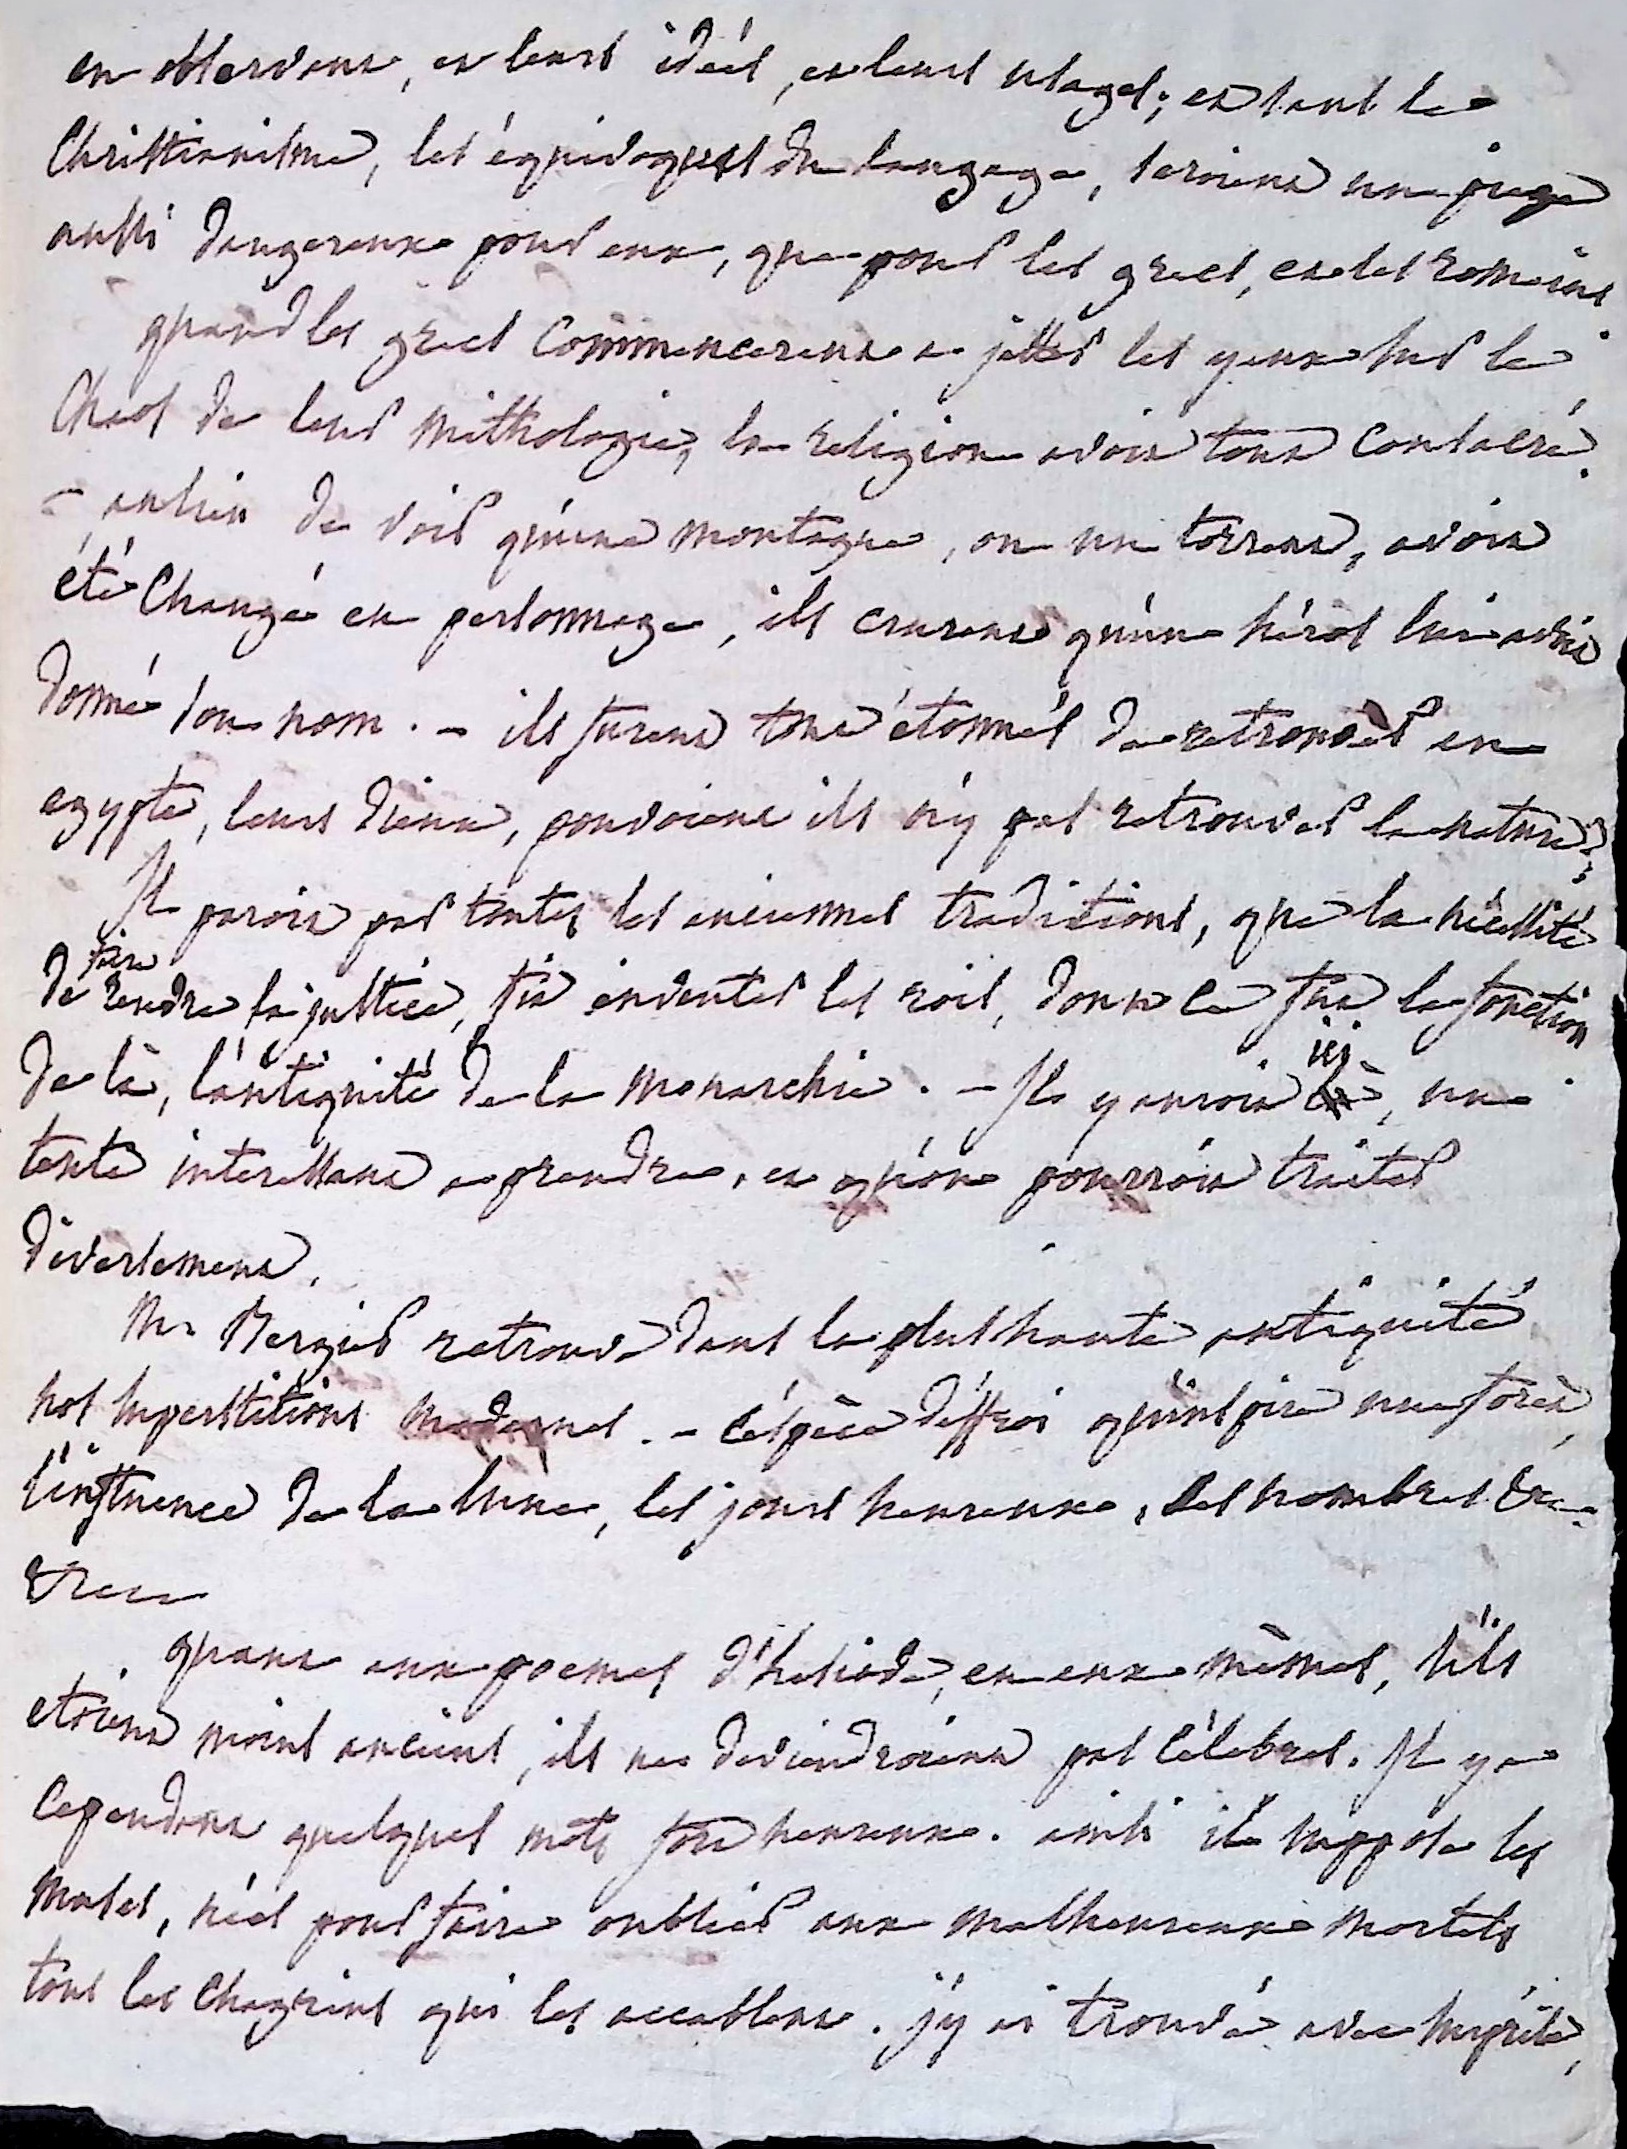 en observant, et leurs idées, et leurs usages; et sans le
Christianisme, les équivoques du langage, seroient un piege
aussi dangereux pour eux, que pour les grecs, et les romains
quand les grecs commencerent a jetter les yeux sur le
Chaos de leur mithologie, la religion avoit tout consacré.
- aulieu de voir qu'une montagne, ou un torrent, avoit
été changé en personnage, ils crurent qu'un héros lui avoit
donné son nom. - ils furent tout étonnés de retrouver en
egypte, leurs dieux, pouvoient ils n'y pas retrouver la nature?
Il paroit par toutes les anciennes traditions, que la nécessité
de faire rendre la justice, fit inventer les rois, dont ce fut la fonction
de là, l'antiquité de la monarchie. - Il y auroit ici, un
texte interessant a prendre, et qu'on pourroit traiter
diversement.
Mr Bergier retrouve dans la plus haute antiquité
nos superstitions modernes. - l'éspèce d'éffroi qu'inspire une forêt,
l'influence de la lune, les jours heureux, les nombres &c

quant aux poemes d'hésiode, en eux mèmes, s'ils
etoient moins anciens, ils ne deviendroient pas célebres. Il y a
cependant quelques mots fort heureux. ainsi il suppose les
muses, nées pour faire oublier aux malheureux mortels
tous les chagrins qui les accablent. j'y ai trouvé avec surprise,